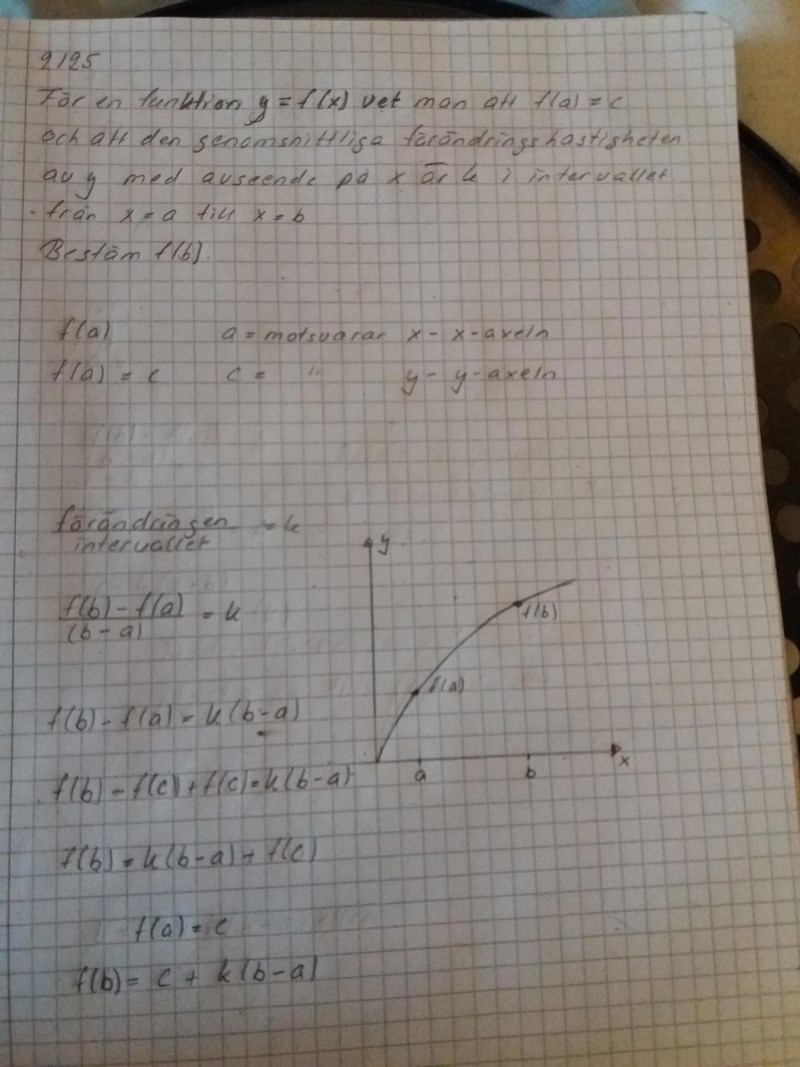 2125
För en funktion y = f(x) vet man att f(a) = c
och att den genomsnittliga förändringshastigheten
av y med avseende på x är k i intervallet
från x = a till x = b
Bestäm f(b).
f(a) a = motsvarar x - x-axeln
f(a) = c c = " y - y-axeln
förändringen = k
intervallet
f(b) - f(a) = k
(b - a)
f(b) - f(a) = k(b-a)
f(b) - f(c) + f(c) = k(b-a)
f(b) = k(b-a) + f(c)
f(a) = c
f(b) = c + k(b-a)
y
f(b)
f(a)
a b x